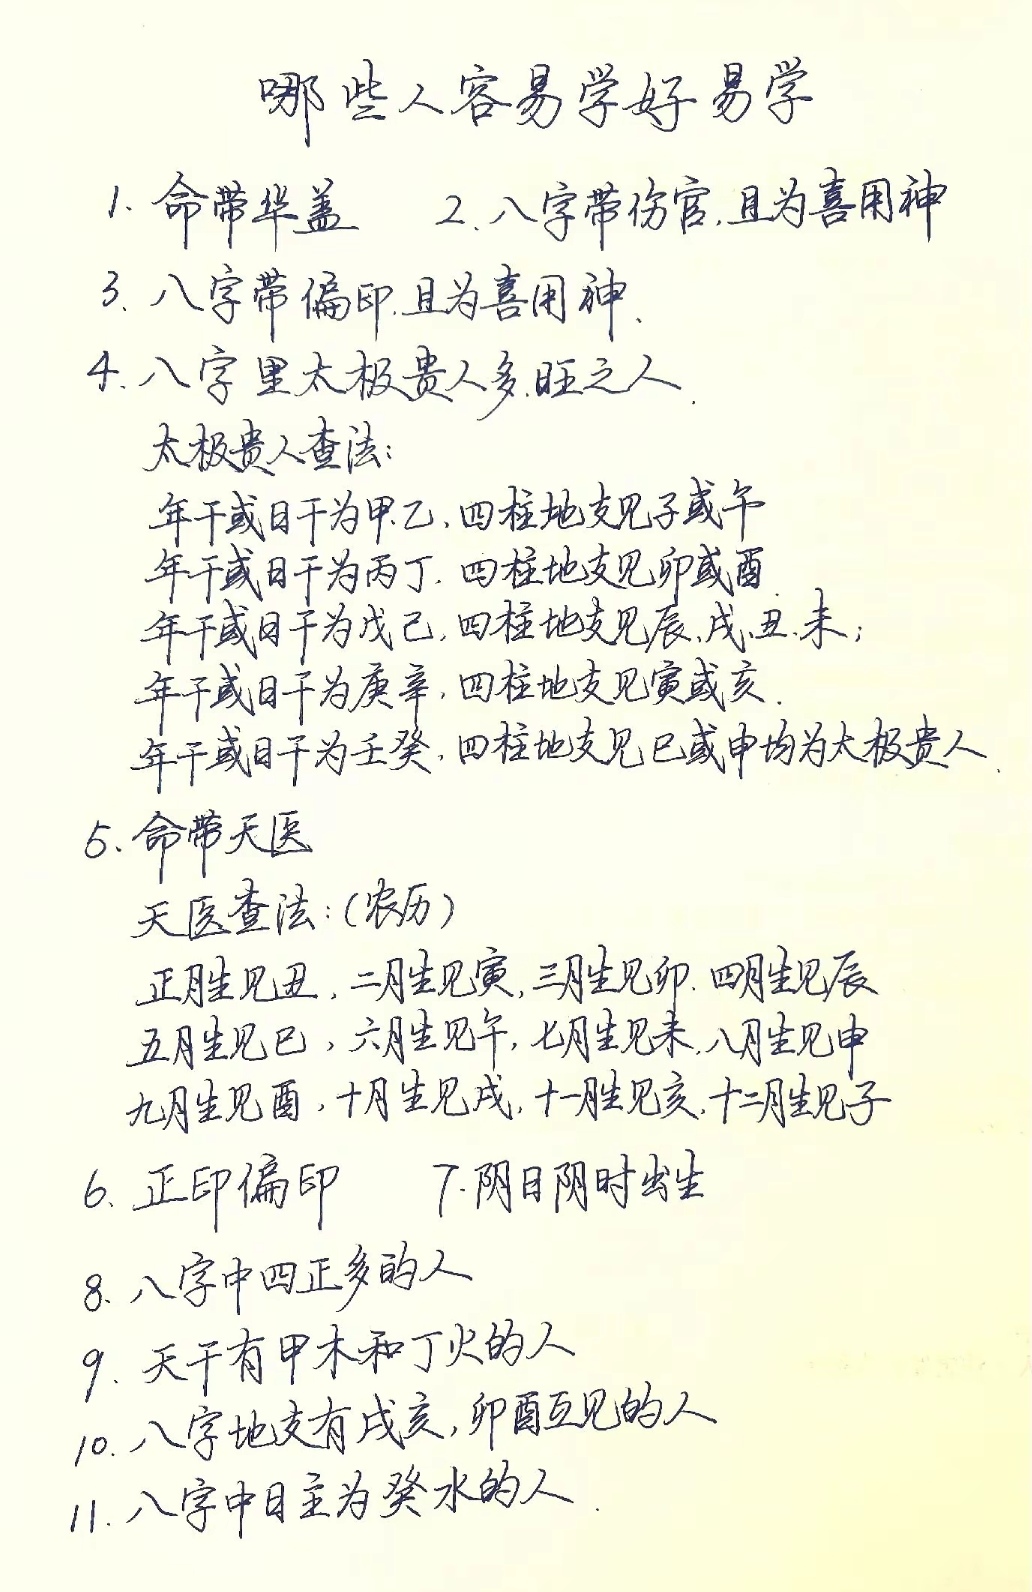 哪些人容易学好易学
1. 命带华盖 2. 八字带伤官.且为喜用神
3. 八字带偏印.且为喜用神.
4. 八字里太极贵人多.旺之人.
太极贵人查法:
年干或日干为甲.乙.四柱地支见子或午
年干或日干为丙丁.四柱地支见卯或酉.
年干或日干为戊己,四柱地支见辰、戌、丑.未;
年干或日干为庚辛.四柱地支见寅或亥.
年干或日干为壬癸.四柱地支见巳或申均为太极贵人.
5. 命带天医
天医查法:(农历)
正月生见丑,二月生见寅,三月生见卯.四月生见辰
五月生见巳,六月生见午,七月生见未.八月生见申
九月生见酉,十月生见戌,十一月生见亥.十二月生见子
6. 正印偏印 7.阴日阴时出生
8. 八字中四正多的人
9. 天干有甲木和丁火的人
10. 八字地支有戌亥,卯酉互见的人
11. 八字中日主为癸水的人.